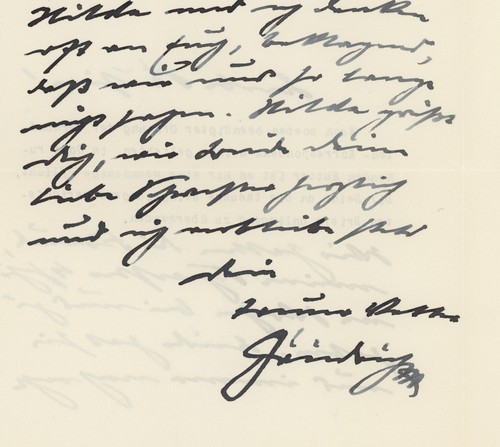 Hilda und ich denken
oft an Euch, beklagend,
daß wir uns so lange
nicht sahen. Hilda grüßt
Dich, wie Deine
liebe Schwester herzlich
und ich verbleibe stets
Dein
treuer Vetter
Friedrich